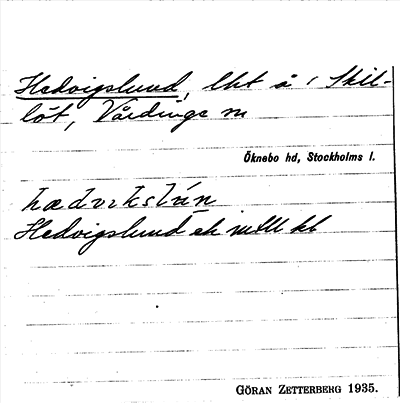 Hedvigslund, lht å i Skil-
löt, Vårdinge sn
Öknebo hd, Stockholms l.
hædvikslún
Hedvigslund ek mtl kb
GÖRAN ZETTERBERG 1935.